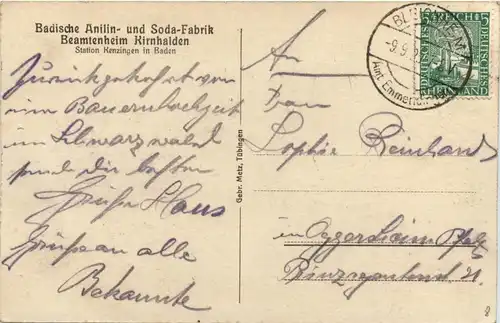 Badische Anilin- und Soda-Fabrik
Beamtenheim Kirnhalden
Station Kenzingen in Baden
Zurückgekehrt von
einer Bauernhochzeit
im Schwarzwald
send dir besten
Grüße Hans
Grüße an alle
Bekannte
Gebr. Metz, Tübingen
An
Frau
Sophie Reinhard
in Oggersheim Pfalz
21.
-9.9
Amt Emmendingen
5 DEUTSCHES REICH 5
RHEINLAND
8